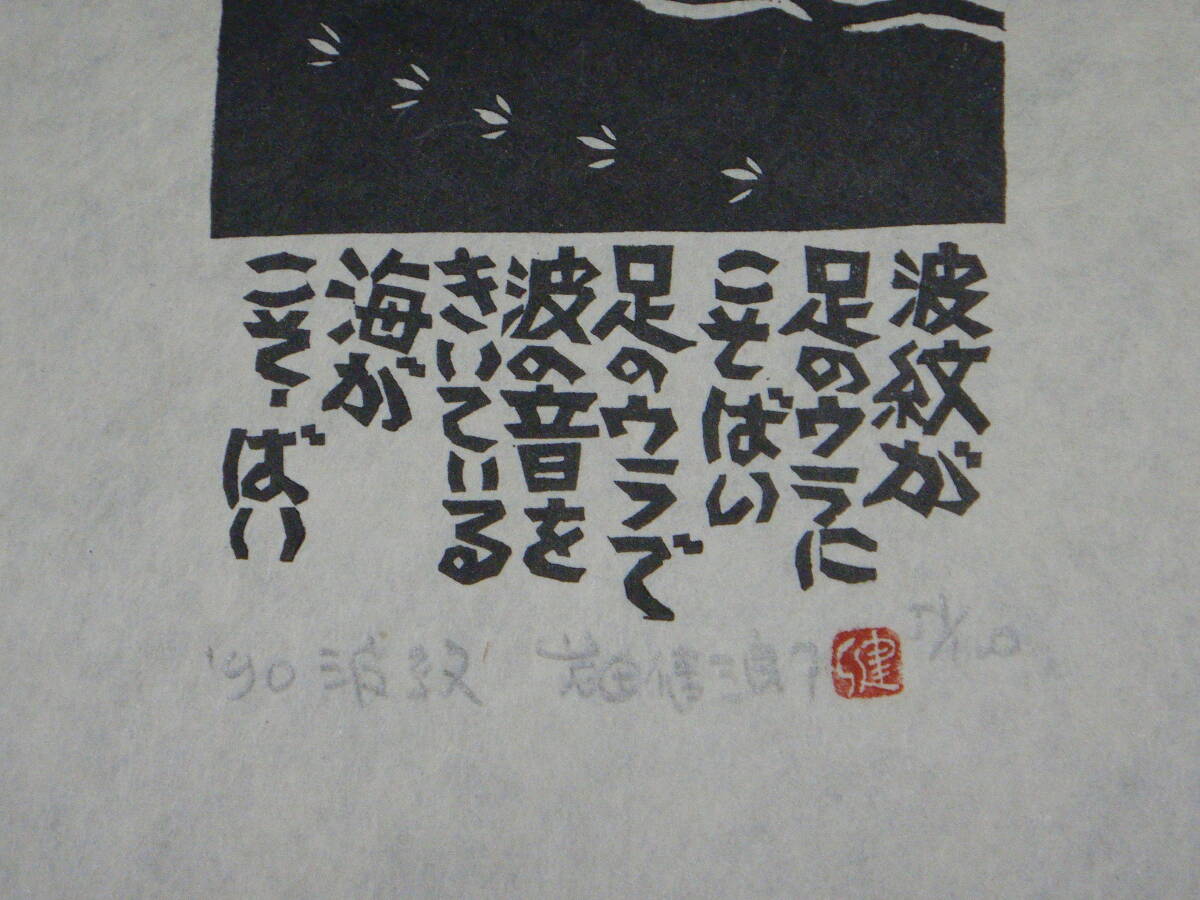 波紋が
足のウラに
こそばい
足のウラで
波の音を
きいている
海が
こそばい
'90 波紋 岩田健三郎
健